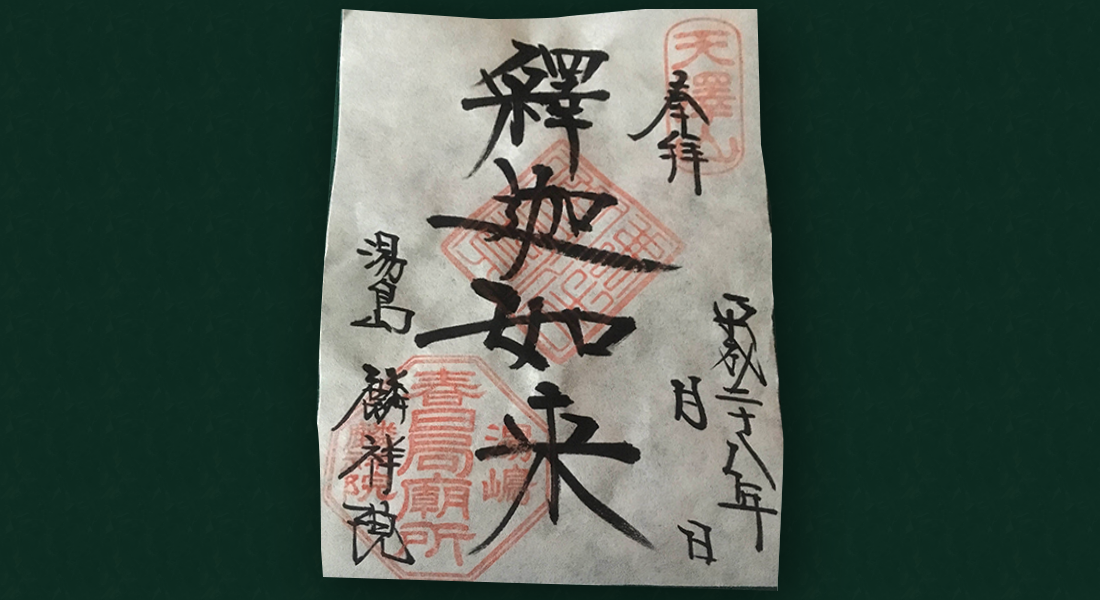 天澤山
奉拝
平成二十八年
月 日
釋迦如来
湯島 麟祥院
湯嶋
春日局廟所
麟祥院